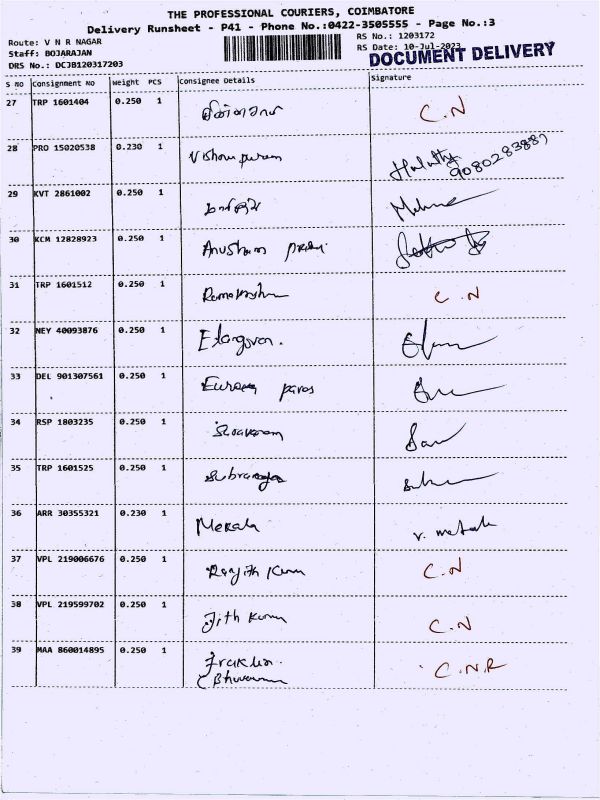 THE PROFESSIONAL COURIERS, COIMBATORE
Delivery Runsheet - P41 - Phone No.:0422-3505555 - Page No.:3
Route: V N R NAGAR
Staff: BOJARAJAN
DRS No.: DCJB120317203
RS No.: 1203172
RS Date: 10-Jul-2023
DOCUMENT DELIVERY
S NO Consignment No Weight PCS Consignee Details Signature
27 TRP 1601404 0.250 1 C.N
28 PRO 15020538 0.230 1 9080283887
29 KVT 2861002 0.250 1
30 KCM 12828923 0.250 1
31 TRP 1601512 0.250 1 Ramakrishna C.N
32 NEY 40093876 0.250 1 Elangovan.
33 DEL 901307561 0.250 1
34 RSP 1803235 0.250 1
35 TRP 1601525 0.250 1
36 ARR 30355321 0.230 1 Mekala
37 VPL 219006676 0.250 1 Ranjith Kumar C.N
38 VPL 219599702 0.250 1 Jith Kumar C.N
39 MAA 860014895 0.250 1 Franklin. C.N.R